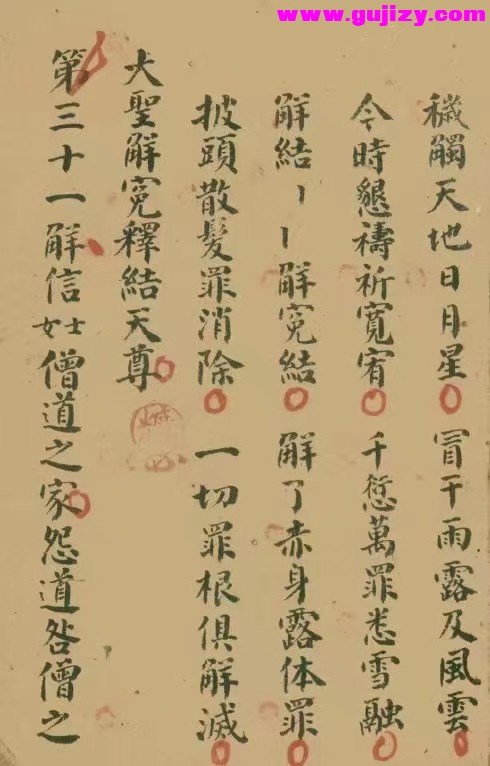 www.gujizy.com
穢觸天地日月星 冐干雨露及風雲
今時懇禱祈寬宥 千愆萬罪悉雪融
解結〻〻解冤結 解了赤身露体罪
披頭散髮罪消除 一切罪根俱解滅
大聖解冤釋結天尊
第三十一解信士女僧道之家怨道咎僧之